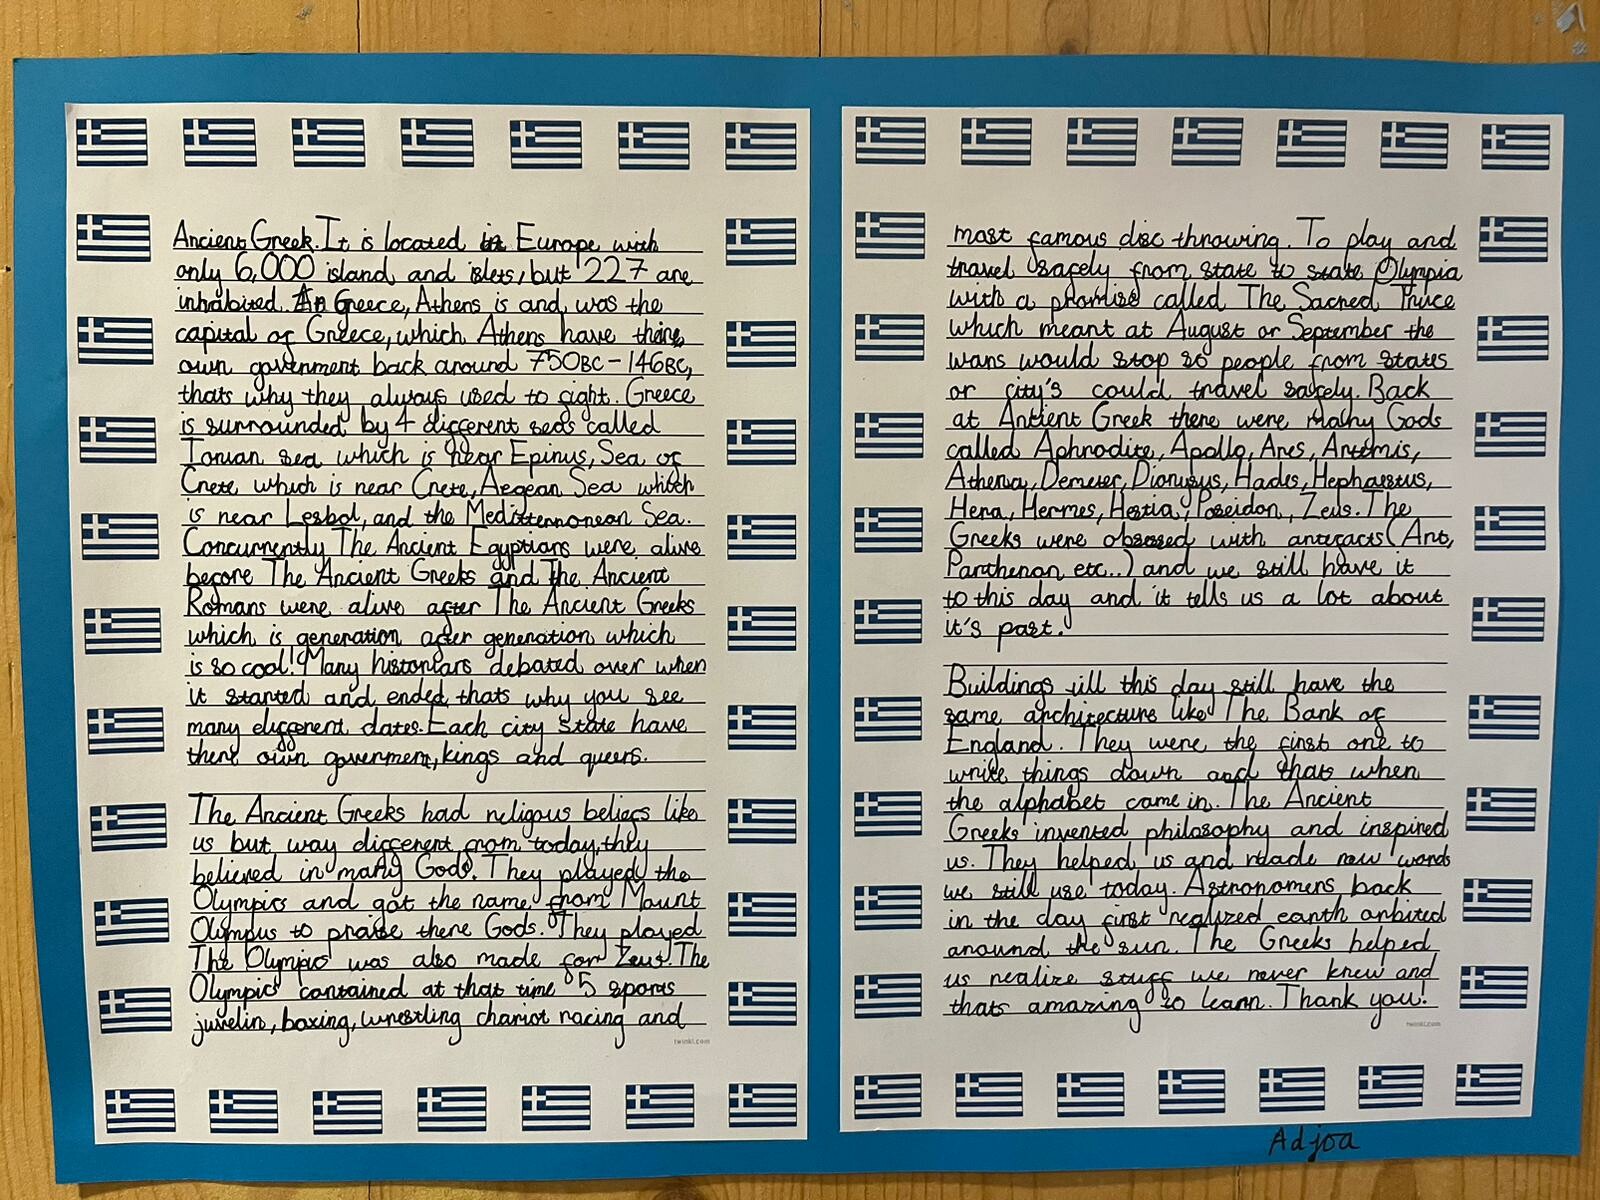 Ancient Greek. It is located in Europe with
only 6,000 island and islets, but 227 are
inhabited. In Greece, Athens is and was the
capital of Greece, which Athens have there
own goverment back around 750BC - 146BC,
thats why they always used to fight. Greece
is surrounded by 4 different seas called
Ionian sea which is near Epirus, Sea of
Crete which is near Crete, Aegean Sea which
is near Lesbol, and the Mediterronean Sea.
Concurrently The Ancient Egyptians were alive
before The Ancient Greeks and The Ancient
Romans were alive after The Ancient Greeks
which is generation after generation which
is so cool! Many historians debated over when
it started and ended, thats why you see
many different dates. Each city state have
there own goverment, kings and queens.
The Ancient Greeks had religous beliefs like
us but way different from today, they
believed in many Gods. They played the
Olympics and got the name from Mount
Olympus to praise there Gods. They played
The Olympic was also made for Zeus. The
Olympics contained at that time 5 sports
juvelin, boxing, wrestling chariot racing and
most famous disc throwing. To play and
travel safely from state to state Olympia
with a promise called The Sacred Truce
which meant at August or September the
wars would stop so people from states
or city's could travel safely. Back
at Ancient Greek there were many Gods
called Aphrodite, Apollo, Ares, Artemis,
Athena, Demeter, Dionysus, Hades, Hephaestus,
Hera, Hermes, Hestia, Poseidon, Zeus. The
Greeks were obsessed with artefacts (Art,
Parthenon etc..) and we still have it
to this day and it tells us a lot about
it's past.
Buildings till this day still have the
same architecture like The Bank of
England. They were the first one to
write things down and thats when
the alphabet came in. The Ancient
Greeks invented philosophy and inspired
us. They helped us and made new words
we still use today. Astronomers back
in the day first realized earth orbited
around the sun. The Greeks helped
us realize stuff we never knew and
thats amazing to learn. Thank you!
twinkl.com
twinkl.com
Adjoa